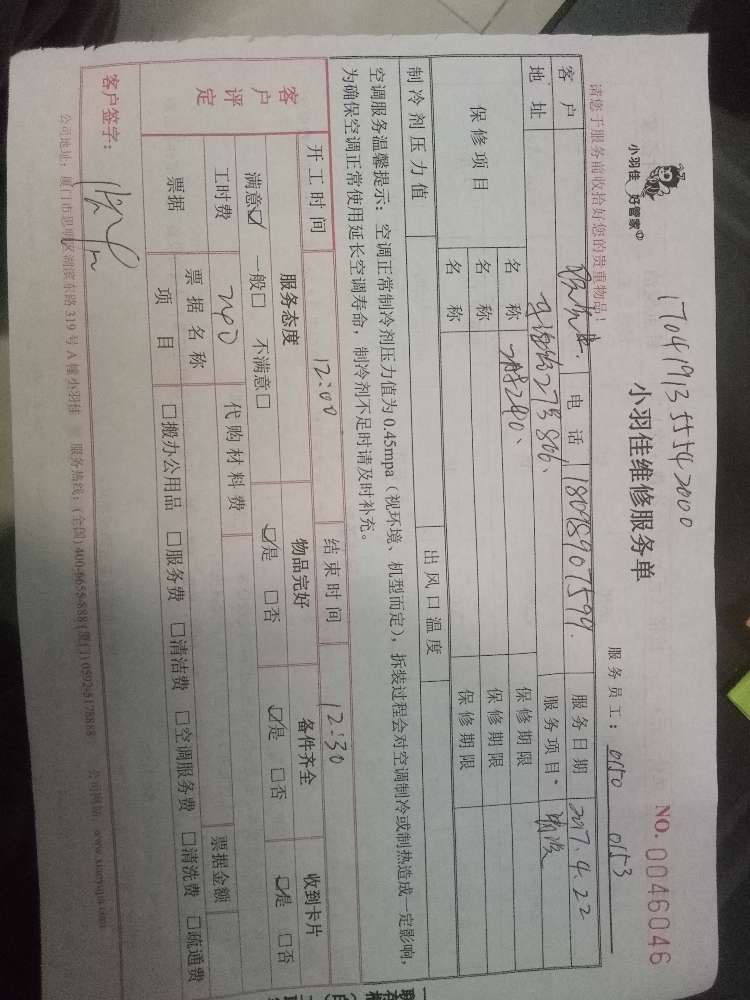 1704191355542000
小羽佳 好管家
小羽佳维修服务单
NO. 0046046
请您于服务前收拾好您的贵重物品！
服务员工：0150 0153
客户 电话 18098907599. 服务日期 2017.4.22
地址 273 806、 服务项目
保修项目 名称 240、 保修期限
名称 保修期限
名称 保修期限
制冷剂压力值 出风口温度
空调服务温馨提示：空调正常制冷剂压力值为0.45mpa（视环境、机型而定），拆装过程会对空调制冷或制热造成一定影响，
为确保空调正常使用延长空调寿命，制冷剂不足时请及时补充。
开工时间 12:00 结束时间 12:30
客户评定 服务态度 物品完好 备件齐全 收到卡片
满意☑ 一般□ 不满意□ ☑是 □否 ☑是 □否 ☑是 □否
工时费 240 代购材料费 票据金额
票据 票据名称
项目 □搬办公用品 □服务费 □清洁费 □空调服务费 □清洗费 □疏通费
客户签字：
公司地址：厦门市思明区湖滨东路319号A幢小羽佳 服务热线：(全国)400-6655-888 (厦门)0592-5178888 公司网站：www.xiaoyujia.com